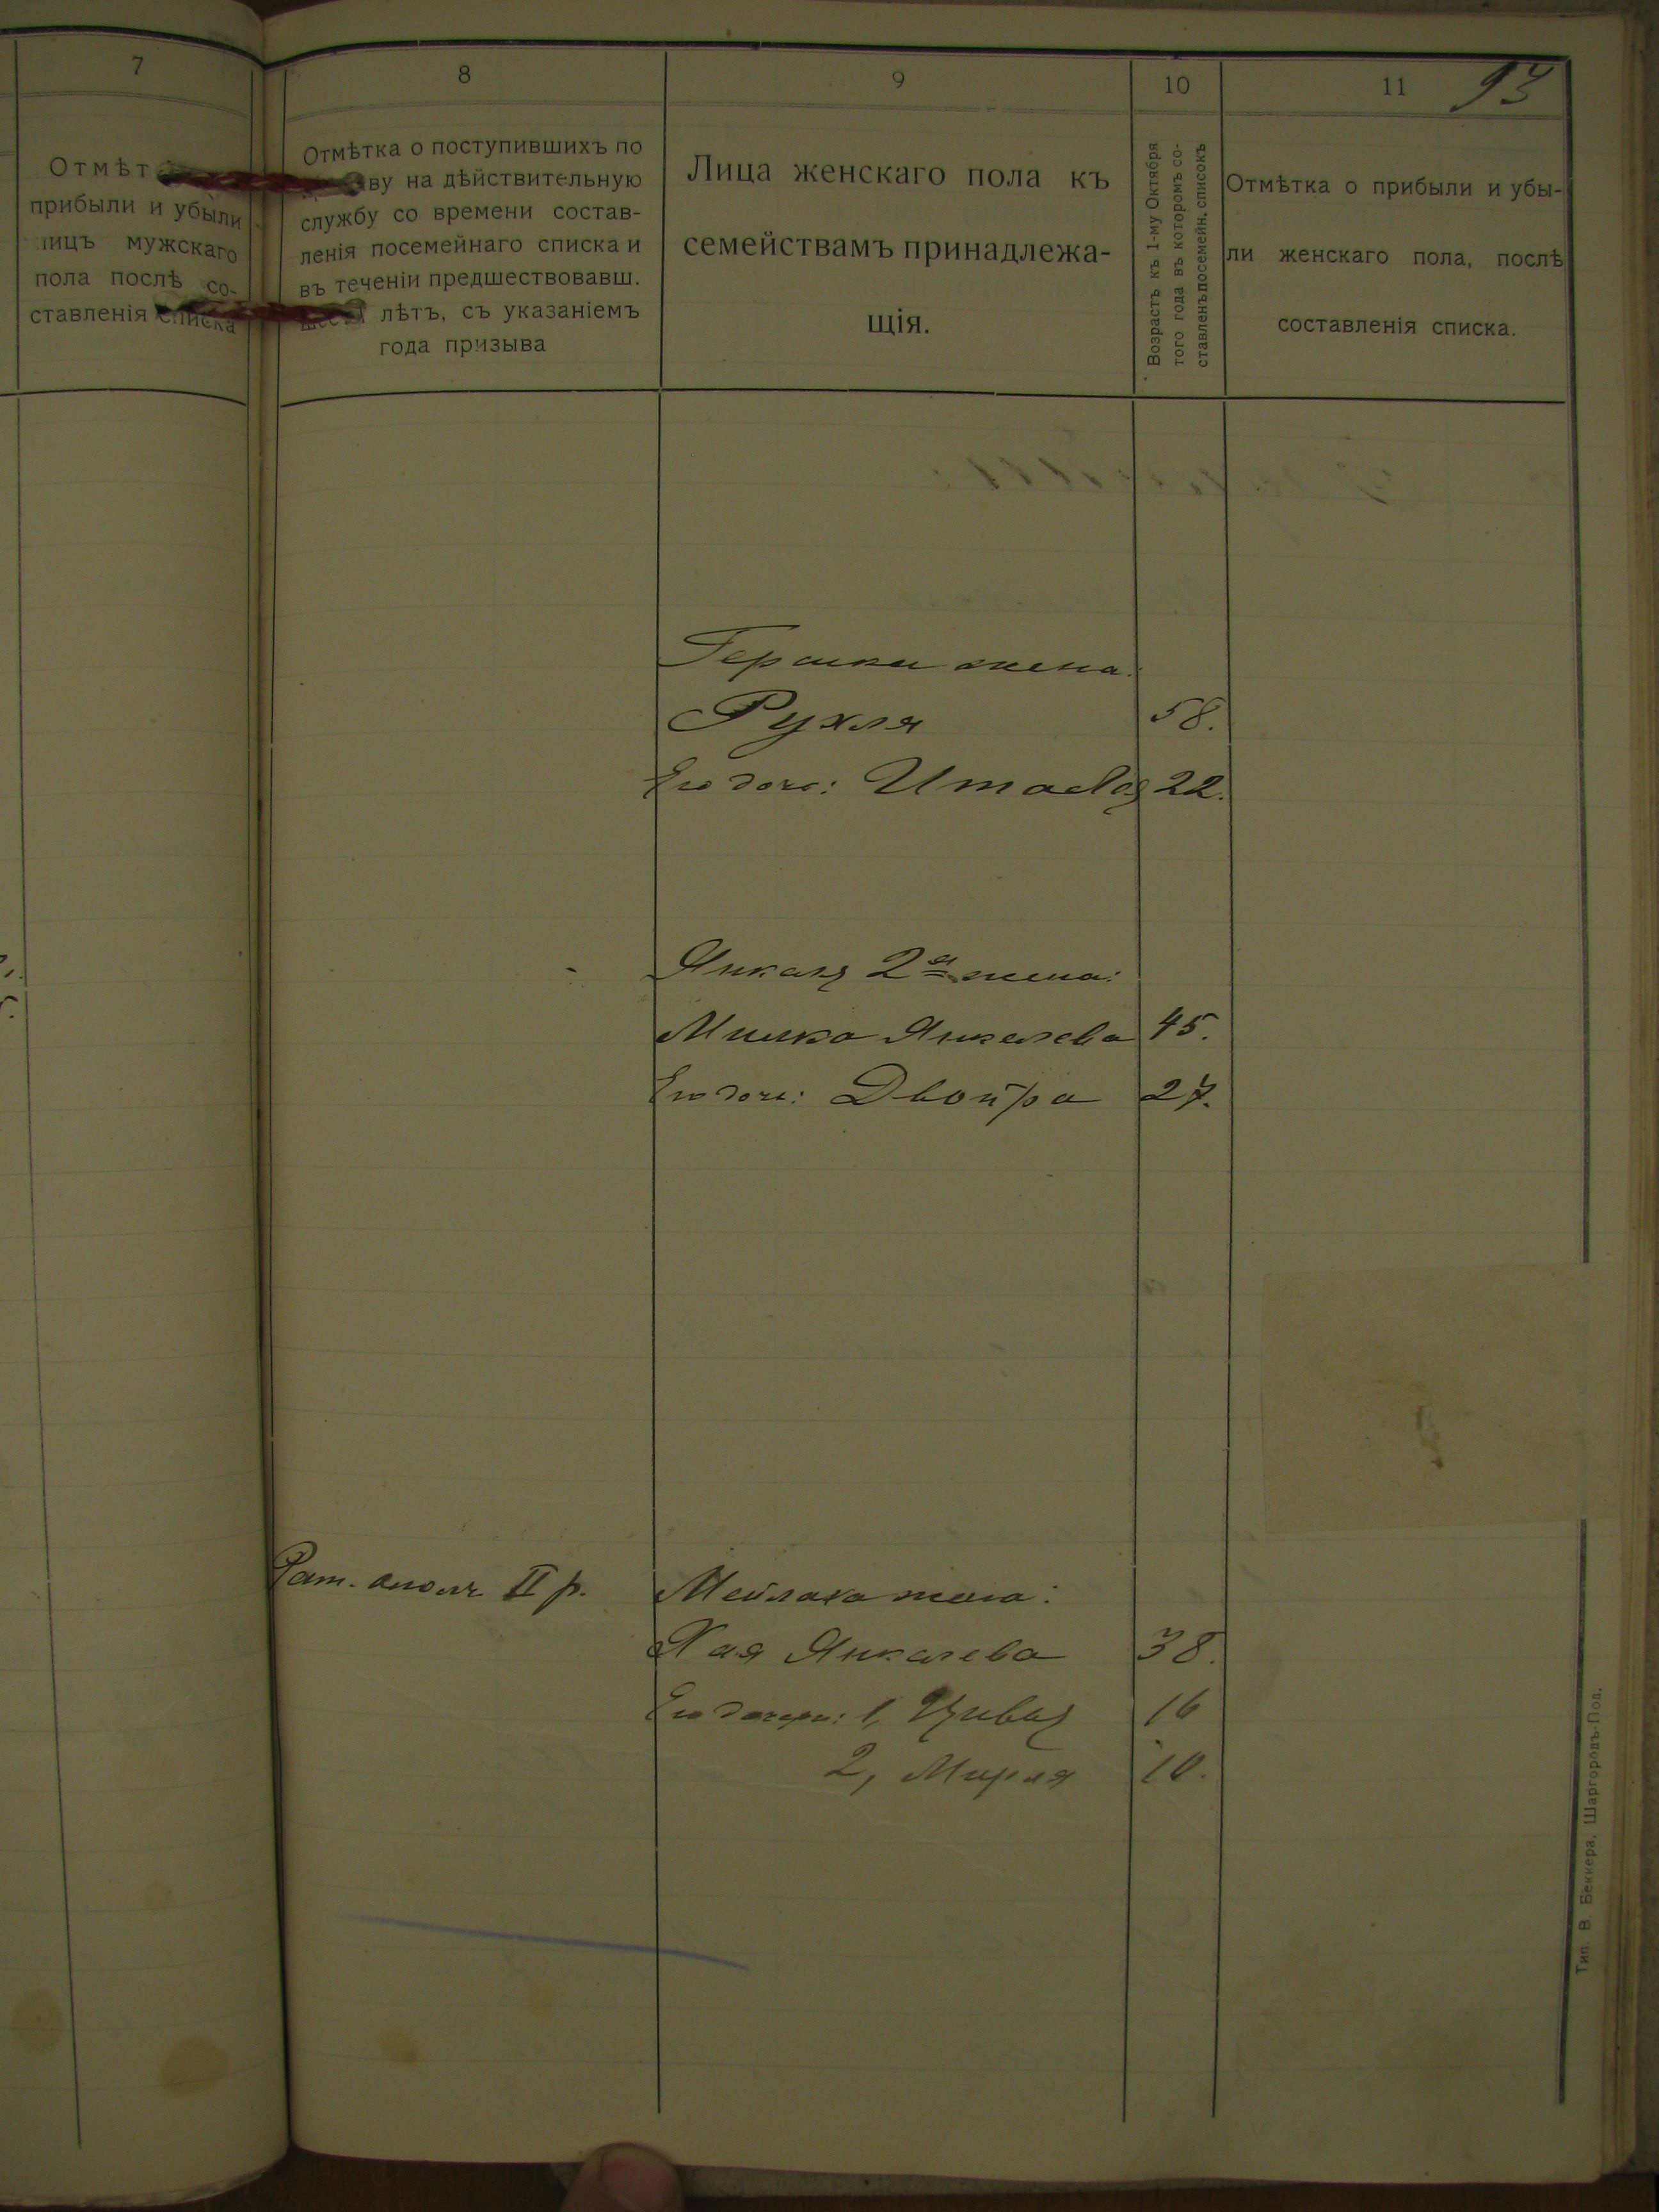 7
8
9
10
11
93
Отмѣт
прибыли и убыли
лицъ мужскаго
пола послѣ со-
ставленія списка
Отмѣтка о поступившихъ по
ву на дѣйствительную
службу со времени состав-
ленія посемейнаго списка и
въ теченіи предшествовавш.
лѣтъ, съ указаніемъ
года призыва
Лица женскаго пола къ
семействамъ принадлежа-
щія.
Возрастъ къ 1-му Октября
того года въ которомъ со-
ставленъ посемейн. списокъ
Отмѣтка о прибыли и убы-
ли женскаго пола, послѣ
составленія списка.
Гершки жена:
Рухля 58.
Его дочь: 22.
Янкеля 2я жена:
Милка Янкелева 45.
Его дочь: Двойра 27.
Рат. ополч. II р.
Мейлаха жена:
Хая Янкелева 38.
Его дочери: 1, Цивья 16
2, Мирля 10.
Тип. В. Беккера, Шаргородъ-Под.